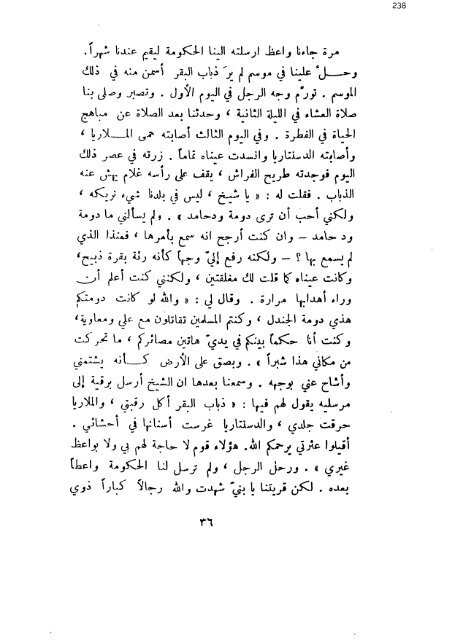 238
مرة جاءنا واعظ ارسلته الينا الحكومة ليقيم عندنا شهراً.
وحلّ علينا في موسم لم يرَ ذباب البقر أسمن منه في ذلك
الموسم . تورّم وجه الرجل في اليوم الأول . وتصبر وصلى بنا
صلاة العشاء في الليلة الثانية ، وحدثنا بعد الصلاة عن مباهج
الحياة في الفطرة . وفي اليوم الثالث أصابته حمى الملاريا ،
وأصابته الدسنتاريا وانسدت عيناه تماماً . زرته في عصر ذلك
اليوم فوجدته طريح الفراش ، يقف على رأسه غلام يهش عنه
الذباب . فقلت له : « يا شيخ ، ليس في بلدنا شيء نريكه ،
ولكني أحب أن ترى دومة ودحامد » . ولم يسألني ما دومة
ود حامد – وان كنت أرجح انه سمع بأمرها ، فمنذا الذي
لم يسمع بها ? – ولكنه رفع إليّ وجهاً كأنه رئة بقرة ذبيح،
وكانت عيناه كما قلت لك مغلقتين ، ولكنني كنت أعلم أن
وراء أهدابها مرارة . وقال لي : « والله لو كانت دومتكم
هذي دومة الجندل ، وكنتم المسلمين تقاتلون مع علي ومعاوية،
وكنت أنا حكماً بينكم في يديّ هاتين مصائركم ، ما تحركت
من مكاني هذا شبراً » . وبصق على الأرض كأنه يشتمني
وأشاح عني بوجهه . وسمعنا بعدها ان الشيخ أرسل برقية إلى
مرسليه يقول لهم فيها : « ذباب البقر أكل رقبتي ، والملاريا
حرقت جلدي ، والدسنتاريا غرست أسنانها في أحشائي .
أقيلوا عثرتي يرحمكم الله. هؤلاء قوم لا حاجة لهم بي ولا بواعظ
غيري » . ورحل الرجل ، ولم ترسل لنا الحكومة واعظاً
بعده . لكن قريتنا يا بنيّ شهدت والله رجالاً كباراً ذوي
٣٦